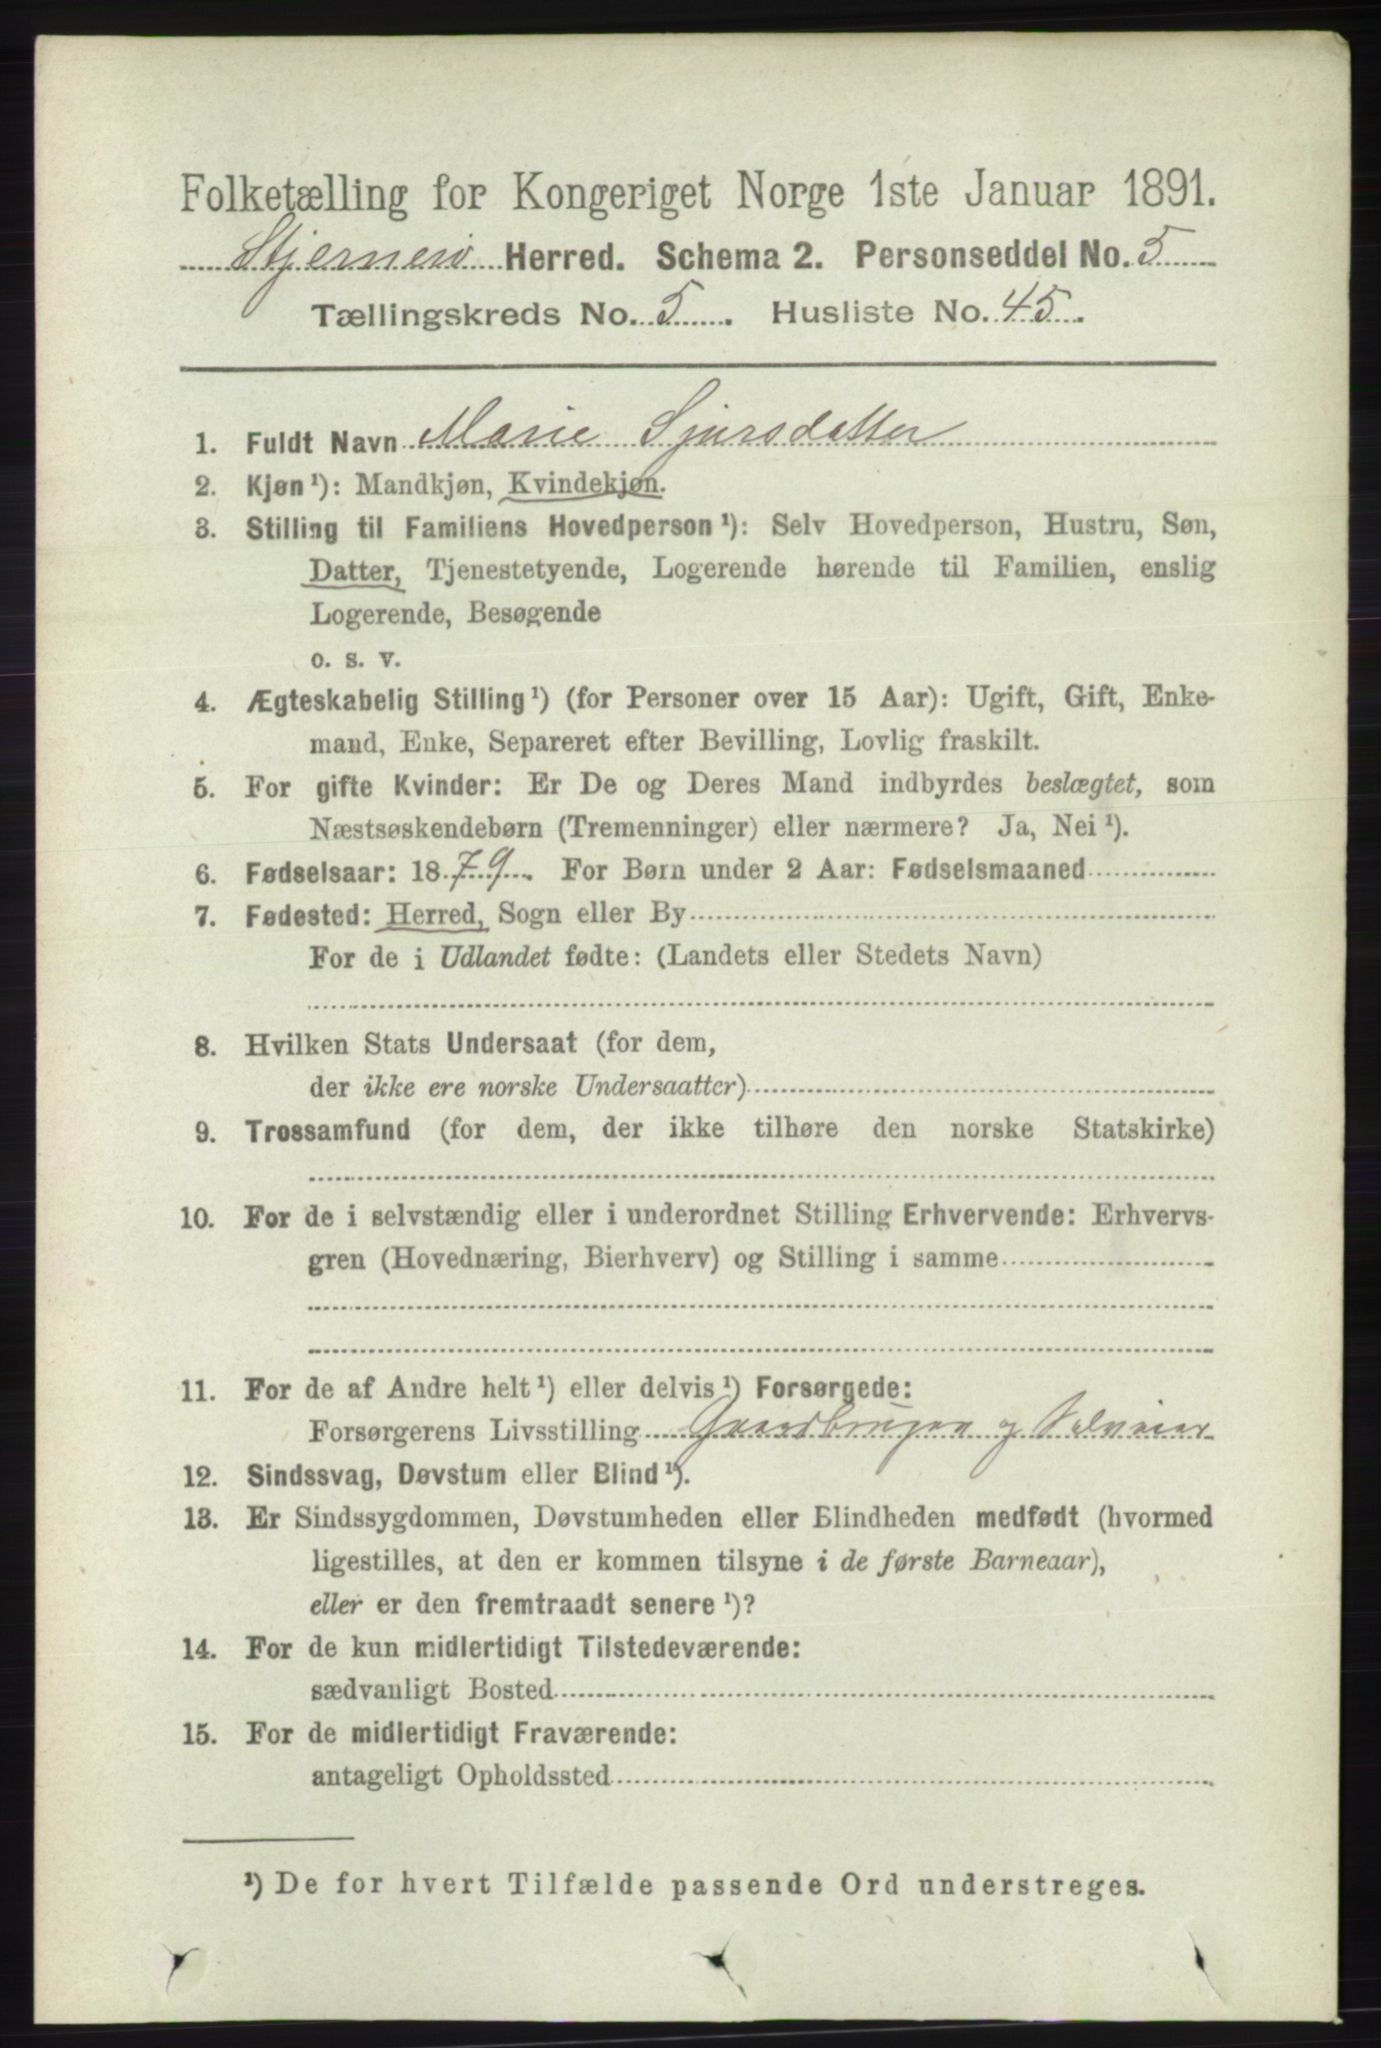 Folketælling for Kongeriget Norge 1ste Januar 1891.
Herred. Schema 2. Personseddel No. 5
Tællingskreds No. 5. Husliste No. 45.
1. Fuldt Navn Marie Sjursdatter
2. Kjøn¹): Mandkjøn, Kvindekjøn.
3. Stilling til Familiens Hovedperson¹): Selv Hovedperson, Hustru, Søn,
Datter, Tjenestetyende, Logerende hørende til Familien, enslig
Logerende, Besøgende
o. s. v.
4. Ægteskabelig Stilling¹) (for Personer over 15 Aar): Ugift, Gift, Enke-
mand, Enke, Separeret efter Bevilling, Lovlig fraskilt.
5. For gifte Kvinder: Er De og Deres Mand indbyrdes beslægtet, som
Næstsøskendebørn (Tremenninger) eller nærmere? Ja, Nei¹).
6. Fødselsaar: 1879. For Børn under 2 Aar: Fødselsmaaned
7. Fødested: Herred, Sogn eller By
For de i Udlandet fødte: (Landets eller Stedets Navn)
8. Hvilken Stats Undersaat (for dem,
der ikke ere norske Undersaatter)
9. Trossamfund (for dem, der ikke tilhøre den norske Statskirke)
10. For de i selvstændig eller i underordnet Stilling Erhvervende: Erhvervs-
gren (Hovednæring, Bierhverv) og Stilling i samme
11. For de af Andre helt¹) eller delvis¹) Forsørgede:
Forsørgerens Livsstilling Gaardbruger og Selveier
12. Sindssvag, Døvstum eller Blind¹).
13. Er Sindssygdommen, Døvstumheden eller Blindheden medfødt (hvormed
ligestilles, at den er kommen tilsyne i de første Barneaar),
eller er den fremtraadt senere¹)?
14. For de kun midlertidigt Tilstedeværende:
sædvanligt Bosted
15. For de midlertidigt Fraværende:
antageligt Opholdssted
¹) De for hvert Tilfælde passende Ord understreges.